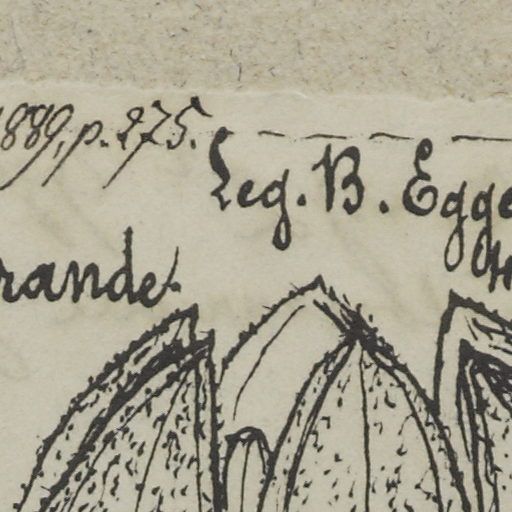 1889, p. 275.
Leg. B. Egge
rande.